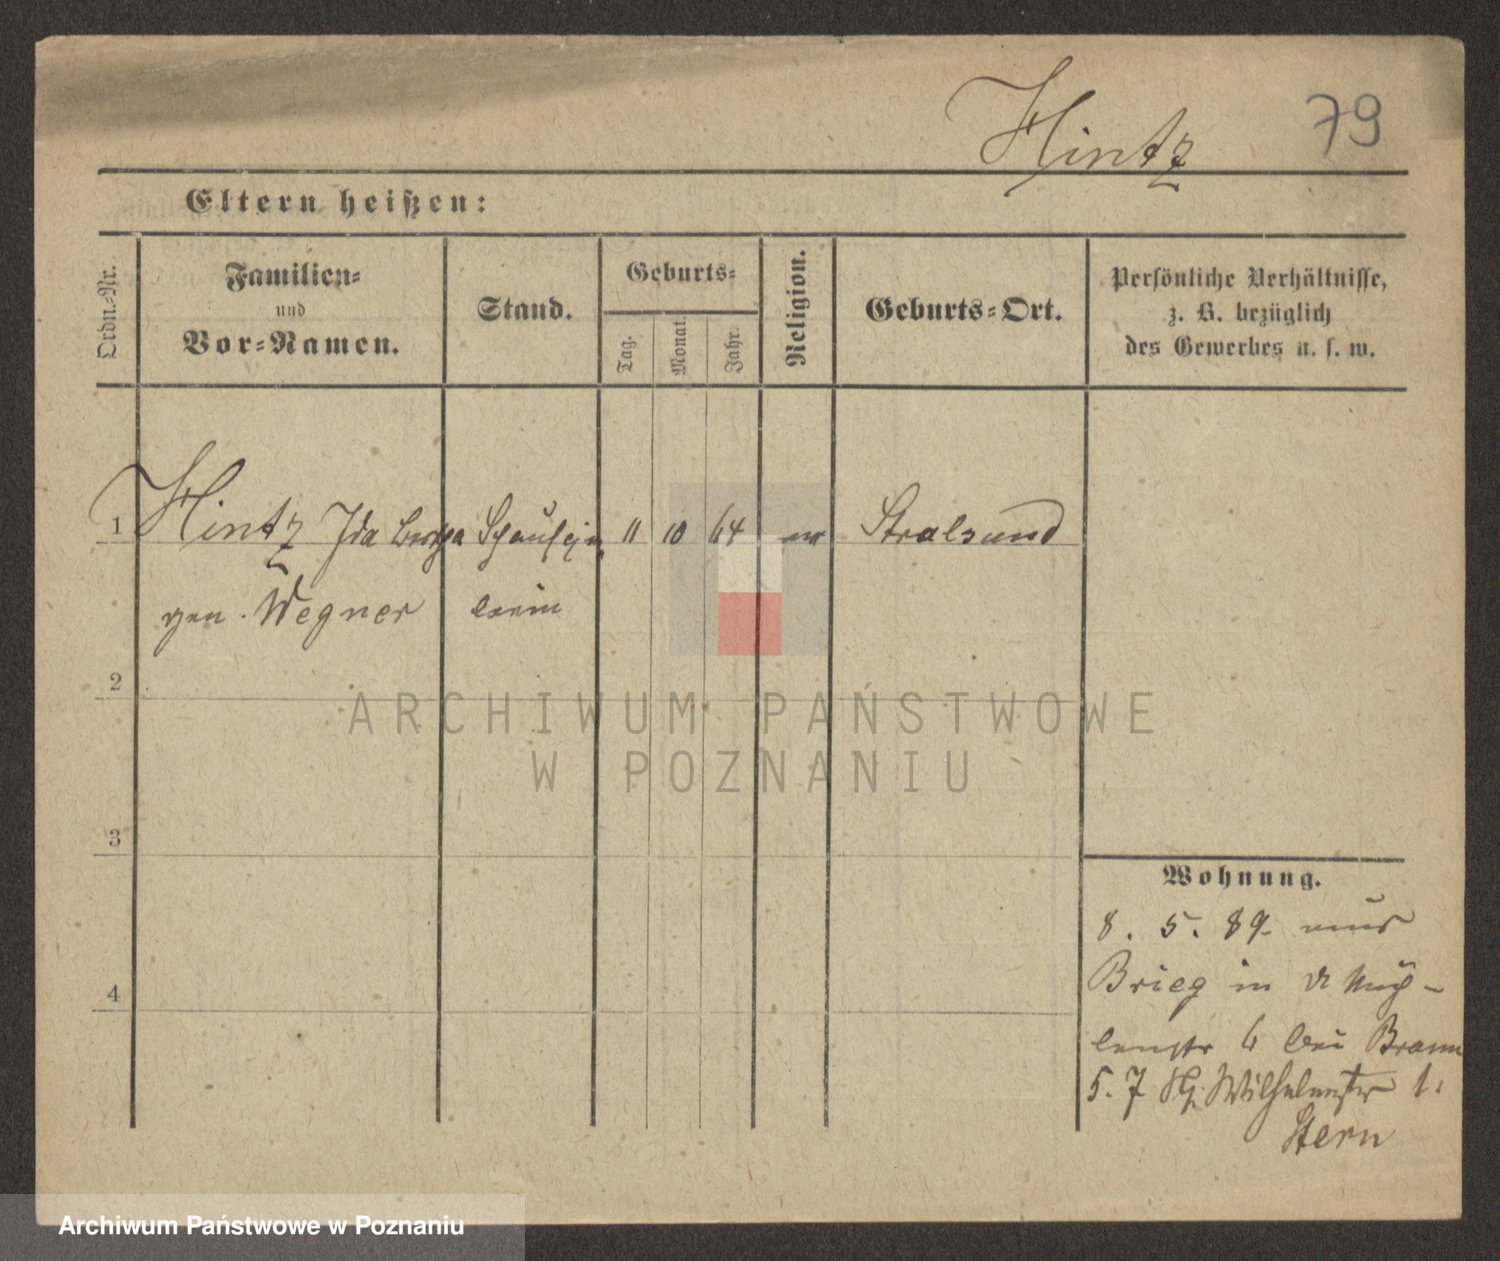 Hintz 79
Eltern heißen:
Ordn.-Nr.
Familien-
und
Vor-Namen.
Stand.
Geburts-
Tag.
Monat.
Jahr.
Religion.
Geburts-Ort.
Persönliche Verhältnisse,
z. B. bezüglich
des Gewerbes u. s. w.
1 Hintz Ida Schauspie 11 10 64 ev Stralsund
gen. Wegner lerin
2
3
4
Wohnung.
8. 5. 89. aus
Brieg in Müh-
lenstr 6 bei Braun
5. 7 Wilhelmstr 1.
Stern
ARCHIWUM PAŃSTWOWE
W POZNANIU
Archiwum Państwowe w Poznaniu